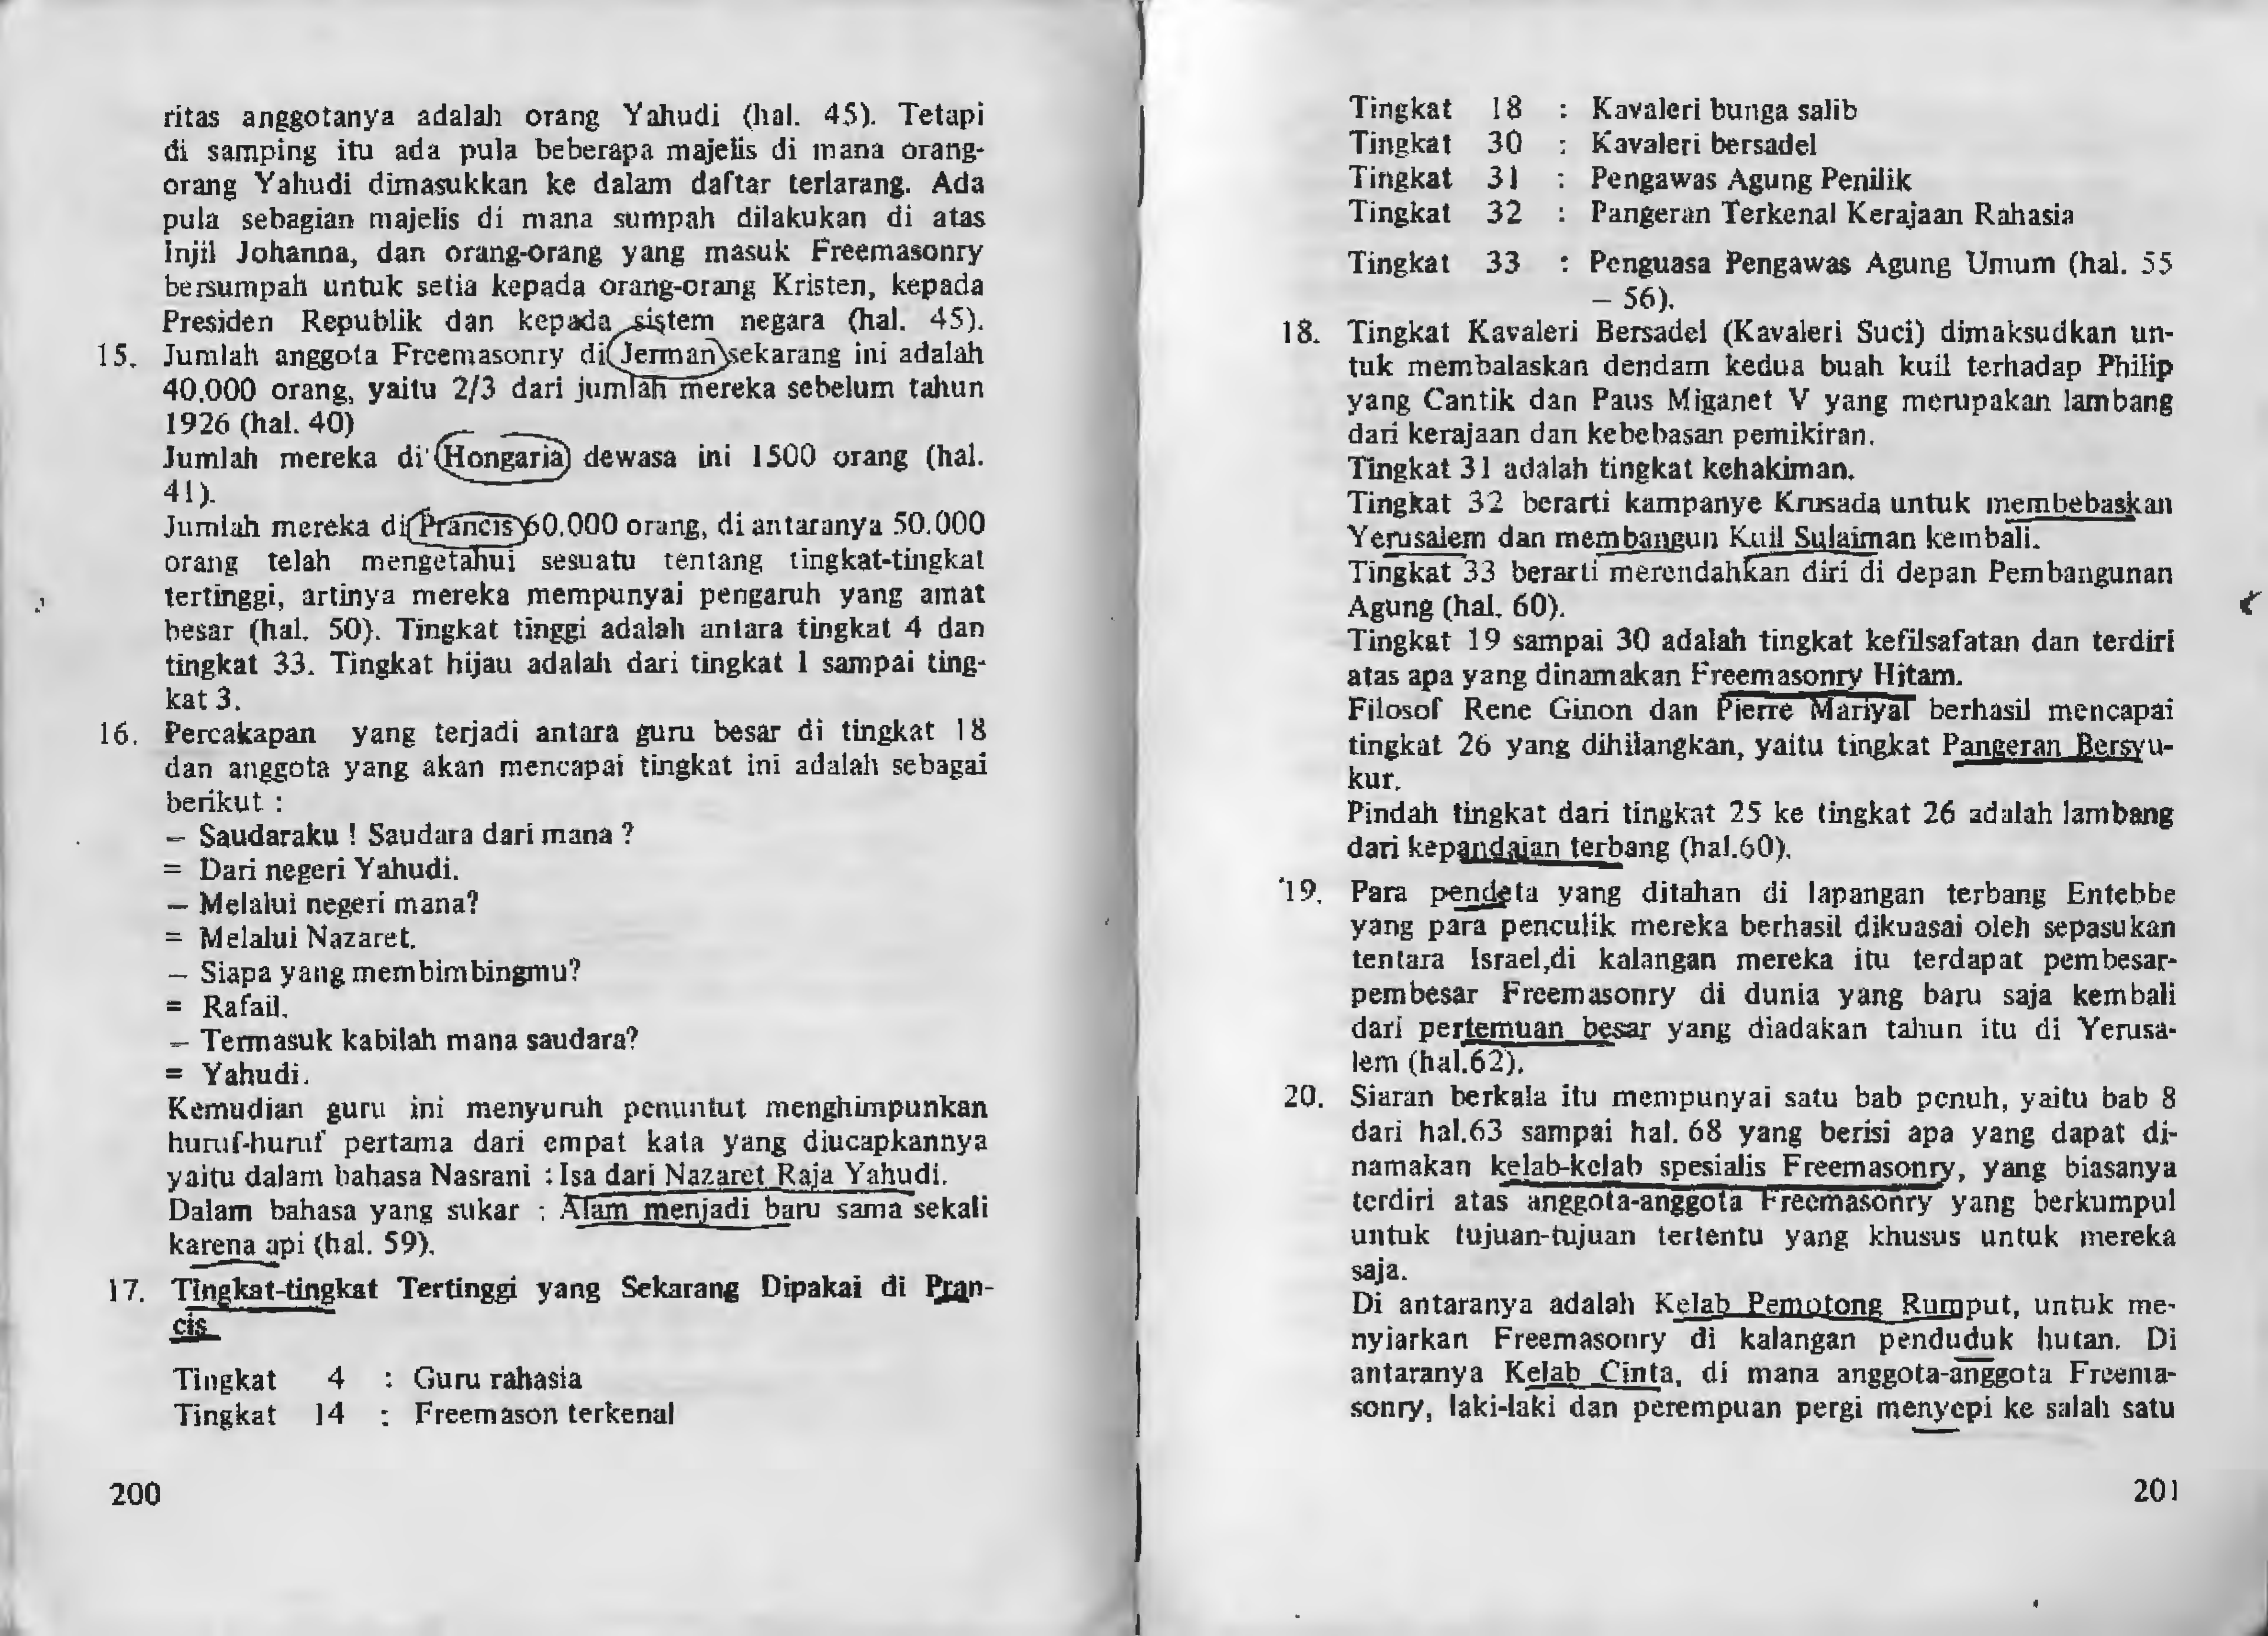 ritas anggotanya adalah orang Yahudi (hal. 45). Tetapi
di samping itu ada pula beberapa majelis di mana orang-
orang Yahudi dimasukkan ke dalam daftar terlarang. Ada
pula sebagian majelis di mana sumpah dilakukan di atas
Injil Johanna, dan orang-orang yang masuk Freemasonry
bersumpah untuk setia kepada orang-orang Kristen, kepada
Presiden Republik dan kepada sistem negara (hal. 45).
15. Jumlah anggota Freemasonry di Jerman sekarang ini adalah
40.000 orang, yaitu 2/3 dari jumlah mereka sebelum tahun
1926 (hal. 40)
Jumlah mereka di Hongaria dewasa ini 1500 orang (hal.
41).
Jumlah mereka di Prancis 60.000 orang, di antaranya 50.000
orang telah mengetahui sesuatu tentang tingkat-tingkat
tertinggi, artinya mereka mempunyai pengaruh yang amat
besar (hal. 50). Tingkat tinggi adalah antara tingkat 4 dan
tingkat 33. Tingkat hijau adalah dari tingkat 1 sampai ting-
kat 3.
16. Percakapan yang terjadi antara guru besar di tingkat 18
dan anggota yang akan mencapai tingkat ini adalah sebagai
berikut :
– Saudaraku ! Saudara dari mana ?
= Dari negeri Yahudi.
– Melalui negeri mana?
= Melalui Nazaret.
– Siapa yang membimbingmu?
= Rafail.
– Termasuk kabilah mana saudara?
= Yahudi.
Kemudian guru ini menyuruh penuntut menghimpunkan
huruf-huruf pertama dari empat kata yang diucapkannya
yaitu dalam bahasa Nasrani : Isa dari Nazaret Raja Yahudi.
Dalam bahasa yang sukar : Alam menjadi baru sama sekali
karena api (hal. 59).
17. Tingkat-tingkat Tertinggi yang Sekarang Dipakai di Pran-
cis
Tingkat 4 : Guru rahasia
Tingkat 14 : Freemason terkenal
200
Tingkat 18 : Kavaleri bunga salib
Tingkat 30 : Kavaleri bersadel
Tingkat 31 : Pengawas Agung Penilik
Tingkat 32 : Pangeran Terkenal Kerajaan Rahasia
Tingkat 33 : Penguasa Pengawas Agung Umum (hal. 55
– 56).
18. Tingkat Kavaleri Bersadel (Kavaleri Suci) dimaksudkan un-
tuk membalaskan dendam kedua buah kuil terhadap Philip
yang Cantik dan Paus Miganet V yang merupakan lambang
dari kerajaan dan kebebasan pemikiran.
Tingkat 31 adalah tingkat kehakiman.
Tingkat 32 berarti kampanye Krusada untuk membebaskan
Yerusalem dan membangun Kuil Sulaiman kembali.
Tingkat 33 berarti merendahkan diri di depan Pembangunan
Agung (hal. 60).
Tingkat 19 sampai 30 adalah tingkat kefilsafatan dan terdiri
atas apa yang dinamakan Freemasonry Hitam.
Filosof Rene Ginon dan Pierre Mariyal berhasil mencapai
tingkat 26 yang dihilangkan, yaitu tingkat Pangeran Bersyu-
kur.
Pindah tingkat dari tingkat 25 ke tingkat 26 adalah lambang
dari kepandaian terbang (hal.60).
19. Para pendeta yang ditahan di lapangan terbang Entebbe
yang para penculik mereka berhasil dikuasai oleh sepasukan
tentara Israel,di kalangan mereka itu terdapat pembesar-
pembesar Freemasonry di dunia yang baru saja kembali
dari pertemuan besar yang diadakan tahun itu di Yerusa-
lem (hal.62).
20. Siaran berkala itu mempunyai satu bab penuh, yaitu bab 8
dari hal.63 sampai hal. 68 yang berisi apa yang dapat di-
namakan kelab-kelab spesialis Freemasonry, yang biasanya
terdiri atas anggota-anggota Freemasonry yang berkumpul
untuk tujuan-tujuan tertentu yang khusus untuk mereka
saja.
Di antaranya adalah Kelab Pemotong Rumput, untuk me-
nyiarkan Freemasonry di kalangan penduduk hutan. Di
antaranya Kelab Cinta, di mana anggota-anggota Freema-
sonry, laki-laki dan perempuan pergi menyepi ke salah satu
201